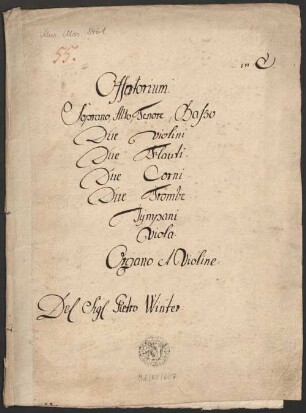 55.
in C
Offertorium.
Soprano, Alto Tenore, Basso
Due Violini
Due Flauti
Due Corni
Due Trombe
Tympani
Viola.
Organo Violine.
Del Sigl Pietro Winter